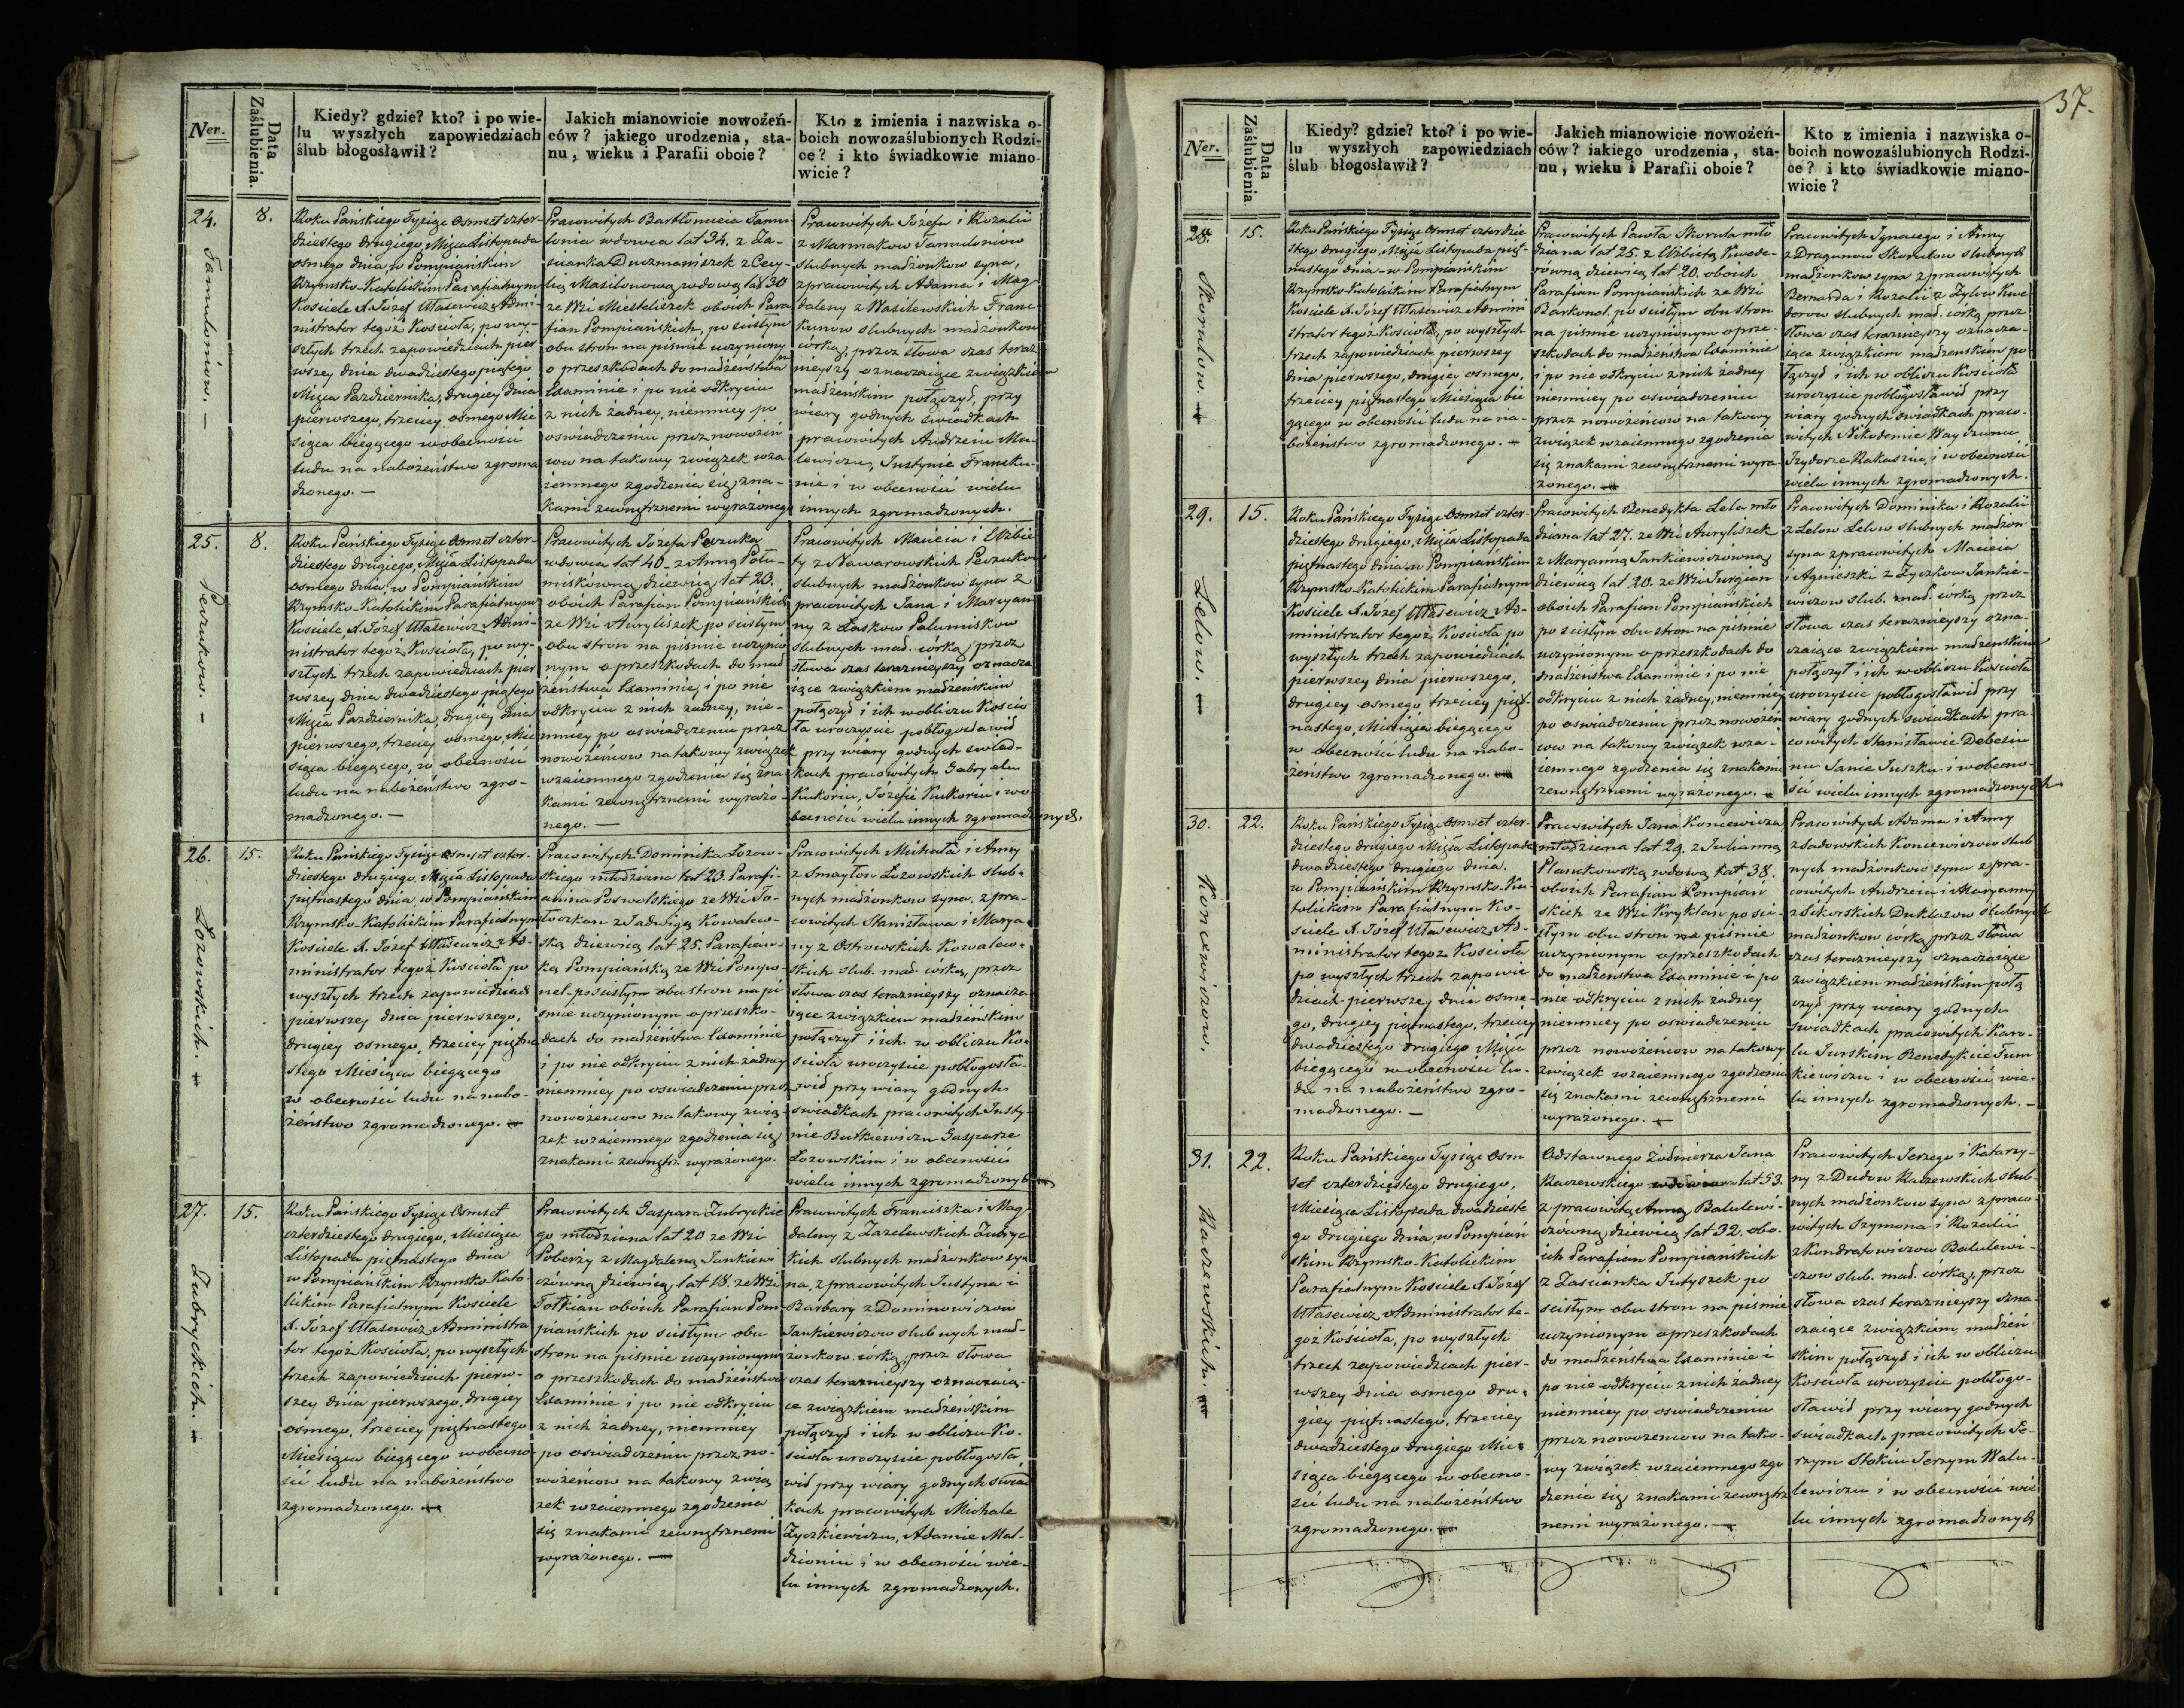 37.
Ner.
Data
Zaślubienia.
Kiedy? gdzie? kto? i po wie-
lu wyszłych zapowiedziach
ślub błogosławił?
Jakich mianowicie nowożeń-
ców? jakiego urodzenia, sta-
nu, wieku i Parafii oboie?
Kto z imienia i nazwiska o-
boich nowozaślubionych Rodzi-
ce? i kto świadkowie miano-
wicie?
24.
8.
Roku Pańskiego Tysiąc Osmset czter-
dziestego drugiego, Mięsia Listopada
osmego dnia, w Pompiańskim
Rzymsko-Katolickim Parafialnym
Kosciele X. Józef Utasewicz Admi-
nistrator tegoż Kościoła, po wy-
szłych trzech zapowiedziach pier
wszey dnia dwadziestego piątego
Miąca Października, drugiey dnia
pierwszego, trzeciey osmego Mie
siąca biegącego w obecności
ludu na nabożeństwo zgroma
dzonego. —
Pracowitych Bartłomieia Tamu
lonia wdowca lat 34. z Za-
scianka Duczmaniszek z Cecy-
lią Masilonową wdową lat 30
ze Wsi Miesteliszek oboich Para
fian Pompiańskich, po scisłym
obu stron na pismie uczyniony
o przeszkodach do madżeństwa
Examinie i po nie odkryciu
z nich żadney, niemniey po
oswiadczeniu przez nowożeń
cow na takowy związek wza
iemnego zgodzenia się, zna-
kami zewnętrznemi wyrażonego
Pracowitych Józefa i Rozalii
z Marmakow Tamuloniow
slubnych madżonkow syna,
z pracowitych Adama i Mag-
daleny z Wasilewskich Franc
kunow slubnych madżonkow
corką, przez słowa czas teraz
nieyszy oznaczaiące związkiem
madżenskim połączył, przy
wiary godnych swiadkach
pracowitych Andrzeiu Ma-
lewiczu, Justynie Francku-
nie i w obecności wielu
innych zgromadzonych.
Tamuloniow. —
25.
8.
Roku Pańskiego Tysiąc Osmset czter-
dziestego drugiego, Miąca Listopada
osmego dnia, w Pompiańskim
Rzymsko-Katolickim Parafialnym
Kosciele, X. Józef Utasewicz Admi-
nistrator tegoż Kościoła, po wy-
szłych trzech zapowiedziach pier
wszey dnia dwadziestego piątego
Miąca Października, drugiey dnia
pierwszego, trzeciey osmego, Mie
siąca biegącego, w obecności
ludu na nabożeństwo zgro-
madzonego. —
Pracowitych Józefa Peczuka
wdowca lat 40 - z Anną Polu-
miskowną, dziewicą, lat 20.
oboich Parafian Pompiańskich
ze Wsi Auryliszek po scisłym
obu stron na pismie uczynio
nym o przeszkodach do mad
żeństwa Examinie, i po nie
odkryciu z nich żadney, nie-
mniey po oswiadczeniu przez
nowożeńcow na takowy związek
wzaiemnego zgodzenia się zna
kami zewnętrznemi wyrażo-
nego. —
Pracowitych Macieia i Elżbie
ty z Nawarowskich Peczukow
slubnych madżonkow syna z
pracowitych Jana i Maryan
ny z Laskow Palumiskow
slubnych mad. córką, przez
słowa czas teraznieyszy oznacza
iące związkiem madżeńskim
połączył i ich w obliczu Koscio
ła uroczyscie pobłogosławił
przy wiary godnych swiad-
kach pracowitych Gabryelu
Kukoriu, Jozefie Kukoriu i w o
becności wielu innych zgromadzonych.
Peczukow. —
26.
15.
Roku Pańskiego Tysiąc Osmset czter-
dziestego drugiego, Miąca Listopada
piętnastego dnia, w Pompiańskim
Rzymsko-Katolickim Parafialnym
Kosciele X. Józef Utasewicz Ad-
ministrator tegoż Kościoła po
wyszłych trzech zapowiedziach
pierwszey dnia pierwszego,
drugiey osmego, trzeciey piętna
stego Miesiąca biegącego
w obecności ludu na nabo-
żeństwo zgromadzonego. —
Pracowitych Dominika Łozow-
skiego młodziana lat 23. Parafi-
anina Poswolskiego ze Wsi To-
łoczkan z Jadwigą Kowalew-
ską dziewicą lat 25. Parafian-
ką Pompiańską ze Wsi Pompo-
nel - po scisłym obu stron na pi
smie uczynionym o przeszko-
dach do madżeństwa Examinie
i po nie odkryciu z nich żadney
niemniey po oswiadczeniu przez
nowożencow na takowy zwią-
zek wzaiemnego zgodzenia się
znakami zewnętrz. wyrażonego.
Pracowitych Michała i Anny
z Smaytow Łozowskich slub-
nych madżonkow syna, z pra-
cowitych Stanisława i Marya-
ny z Ostrowskich Kowalew-
skich slub. mad. córką, przez
słowa czas teraznieyszy oznacza-
iące związkiem madżenskim
połączył i ich w obliczu Ko-
scioła uroczyscie pobłogosła-
wił przy wiary godnych
swiadkach pracowitych Justy-
nie Butkiewiczu Gasparze
Łozowskim i w obecności
wielu innych zgromadzonych
Łozowskich. —
27.
15.
Roku Pańskiego Tysiąc Osmset
czterdziestego drugiego, Miesiąca
Listopada piętnastego dnia
w Pompiańskim Rzymsko Kato-
lickim Parafialnym Kosciele
X. Józef Utasewicz Administra
tor tegoż Kościoła, po wyszłych
trzech zapowiedziach pierw-
szey dnia pierwszego, drugiey
osmego, trzeciey piętnastego
Miesiąca biegącego w obecno-
sci ludu na nabożeństwo
zgromadzonego. —
Pracowitych Gaspara Zubryckie
go młodziana lat 20 ze Wsi
Poberży z Magdaleną Jankiewi
czówną dziewicą, lat 18. ze Wsi
Totkian oboich Parafian Pom
piańskich po scisłym obu
stron na pismie uczynionym
o przeszkodach do madżeństwa
Examinie i po nie odkryciu
z nich żadney, niemniey
po oswiadczeniu przez no-
wożeńcow na takowy zwią
zek wzaiemnego zgodzenia
się znakami zewnętrznemi
wyrażonego. —
Pracowitych Franciszka i Mag-
daleny z Zazelewskich Zubryc
kich slubnych madżonkow sy-
na, z pracowitych Justyna i
Barbary z Dominowiczow
Jankiewiczow slubnych mad-
żonkow córką, przez słowa
czas teraznieyszy oznaczaią-
ce związkiem madżeńskim
połączył i ich w obliczu Ko-
scioła uroczyscie pobłogosła
wił przy wiary godnych swiad
kach pracowitych Michale
Zyczkiewiczu, Adamie Mal-
dzioniu i w obecności wie-
lu innych zgromadzonych.
Zubryckich. —
Ner.
Data
Zaślubienia.
Kiedy? gdzie? kto? i po wie-
lu wyszłych zapowiedziach
ślub błogosławił?
Jakich mianowicie nowożeń-
ców? iakiego urodzenia, sta-
nu, wieku i Parafii oboie?
Kto z imienia i nazwiska o-
boich nowozaślubionych Rodzi-
ce? i kto świadkowie miano-
wicie?
28.
15.
Roku Pańskiego Tysiąc Osmset czterdzie
stego drugiego, Miąca Listopada, pięt-
nastego dnia - w Pompiańskim
Rzymsko-Katolickim Parafialnym
Kosciele X. Józef Utasewicz Admini
strator tegoż Kościoła, po wyszłych
trzech zapowiedziach pierwszey
dnia pierwszego, drugiey osmego,
trzeciey piętnastego Miesiąca bie
gącego w obecności ludu na na-
bożeństwo zgromadzonego. —
Pracowitych Pawła Skorula mło
dziana lat 25. z Elżbietą Kwede-
równą dziewicą, lat 20. oboich
Parafian Pompiańskich ze Wsi
Barkonol. po scisłym obu stron
na pismie uczynionym o prze-
szkodach do madżeństwa Examinie
i po nie odkryciu z nich żadney
niemniey po oswiadczeniu
przez nowożeńcow na takowy
związek wzaiemnego zgodzenia
się znakami zewnętrznemi wyra-
żonego. —
Pracowitych Ignacego i Anny
z Dragunow Skorulow slubnych
madżonkow syna z pracowitych
Bernarda i Rozalii z Zylow Kwe
derow slubnych mad. corką przez
słowa czas teraznieyszy oznacza-
iące związkiem madżenskim po
łączył i ich w obliczu Kościoła
uroczyscie pobłogosławił przy
wiary godnych swiadkach praco-
witych Nikodemie Way
Izydorze Rakaszu, i w obecności
wielu innych zgromadzonych.
Skorulow. —
29.
15.
Roku Pańskiego Tysiąc Osmset czter-
dziestego drugiego, Miąca Listopada
piętnastego dnia w Pompiańskim
Rzymsko-Katolickim Parafialnym
Kosciele X. Józef Utasewicz Ad-
ministrator tegoż Kościoła po
wyszłych trzech zapowiedziach
pierwszey dnia pierwszego,
drugiey osmego, trzeciey pięt-
nastego, Miesiąca biegącego
w obecności ludu na nabo-
żeństwo zgromadzonego. —
Pracowitych Benedykta Lela mło
dziana lat 27. ze Wsi Auryliszek
z Maryanną Jankiewiczówną
dziewicą lat 20. ze Wsi Jurgian
oboich Parafian Pompiańskich
po scisłym obu stron na pismie
uczynionym o przeszkodach do
madżeństwa Examinie i po nie
odkryciu z nich żadney, niemniey
po oswiadczeniu przez nowożeń
cow na takowy związek wza-
iemnego zgodzenia się znakami
zewnętrznemi wyrażonego. —
Pracowitych Dominika i Rozalii
z Lelow Lelow slubnych madżon
syna z pracowitych Macieia
i Agnieszki z Zyczkow Jankie-
wiczow slub. mad. corką przez
słowa czas teraznieyszy ozna-
czaiące związkiem madżenskim
połączył i ich w obliczu Kościoła
uroczyscie pobłogosławił przy
wiary godnych swiadkach pra-
cowitych Stanisławie Debesiu
nu Janie Juszku i w obecno-
ści wielu innych zgromadzonych
Lelow. —
30.
22.
Roku Pańskiego Tysiąc Osmset czter-
dziestego drugiego Miąca Listopada
dwadziestego drugiego dnia.
w Pompiańskim Rzymsko-Ka-
tolickim Parafialnym Ko-
sciele X. Józef Utasewicz Ad-
ministrator tegoż Kościoła
po wyszłych trzech zapowie
dziach pierwszey dnia osme-
go, drugiey piętnastego, trzeciey
dwadziestego drugiego Miąca
biegącego w obecności lu-
du na nabożeństwo zgro-
madzonego. —
Pracowitych Jana Koncewicza
młodziana lat 29. z Julianną
Planskowską wdową lat 38.
oboich Parafian Pompian
skich ze Wsi Kryklan po sci-
słym obu stron na pismie
uczynionym o przeszkodach
do madżenstwa Examinie i po
nie odkryciu z nich żadney
niemniey po oswiadczeniu
przez nowożeńcow na takowy
związek wzaiemnego zgodzenia
się znakami zewnętrznemi
wyrażonego. —
Pracowitych Adama i Anny
z Sadowskich Koncewiczow slub
nych madżonkow syna z pra-
cowitych Andrzeia i Maryanny
z Sikorskich Duklasow slubnych
madżonkow corką przez słowa
czas teraznieyszy oznaczaiące
związkiem madżeńskim połą
czył przy wiary godnych
swiadkach pracowitych Karo-
lu Jurskim Benedykcie Tum
kiewiczu i w obecności wie-
lu innych zgromadzonych. —
Koncewiczow
31.
22.
Roku Pańskiego Tysiąc Osm
set czterdziestego drugiego,
Miesiąca Listopada dwadzieste
go drugiego dnia, w Pompiań
skim Rzymsko-Katolickim
Parafialnym Kosciele X. Józef
Utasewicz Administrator te-
goż Kościoła, po wyszłych
trzech zapowiedziach pier-
wszey dnia osmego dru-
giey piętnastego, trzeciey
dwadziestego drugiego Mie-
siąca biegącego w obecno-
ści ludu na nabożeństwo
zgromadzonego. —
Odstawnego Żołnierza Jana
Raszewskiego wdowca lat 53.
z pracowitą Anną Balulewi-
czówną, dziewicą, lat 32. obo-
ich Parafian Pompiańskich
z Zascianka Jutyszek po
scisłym obu stron na pismie
uczynionym o przeszkodach
do madżeństwa Examinie i
po nie odkryciu z nich żadney
niemniey po oswiadczeniu
przez nowożencow na tako-
wy związek wzaiemnego zgo
dzenia się znakami zewnętrz
nemi wyrażonego. —
Pracowitych Jerzego i Katarzy-
ny z Dudow Raszewskich slub-
nych madżonkow syna z praco-
witych Szymona i Rozalii
z Kondratowiczow Balulewi-
czow slub. mad. córką, przez
słowa czas teraznieyszy ozna-
czaiące związkiem madżeń
skim połączył i ich w obliczu
Kościoła uroczyscie pobłogo-
sławił przy wiary godnych
swiadkach pracowitych Je-
rzym Stokiu Jerzym Walu-
lewiczu i w obecności wie
lu innych zgromadzonych
Raszewskich. —